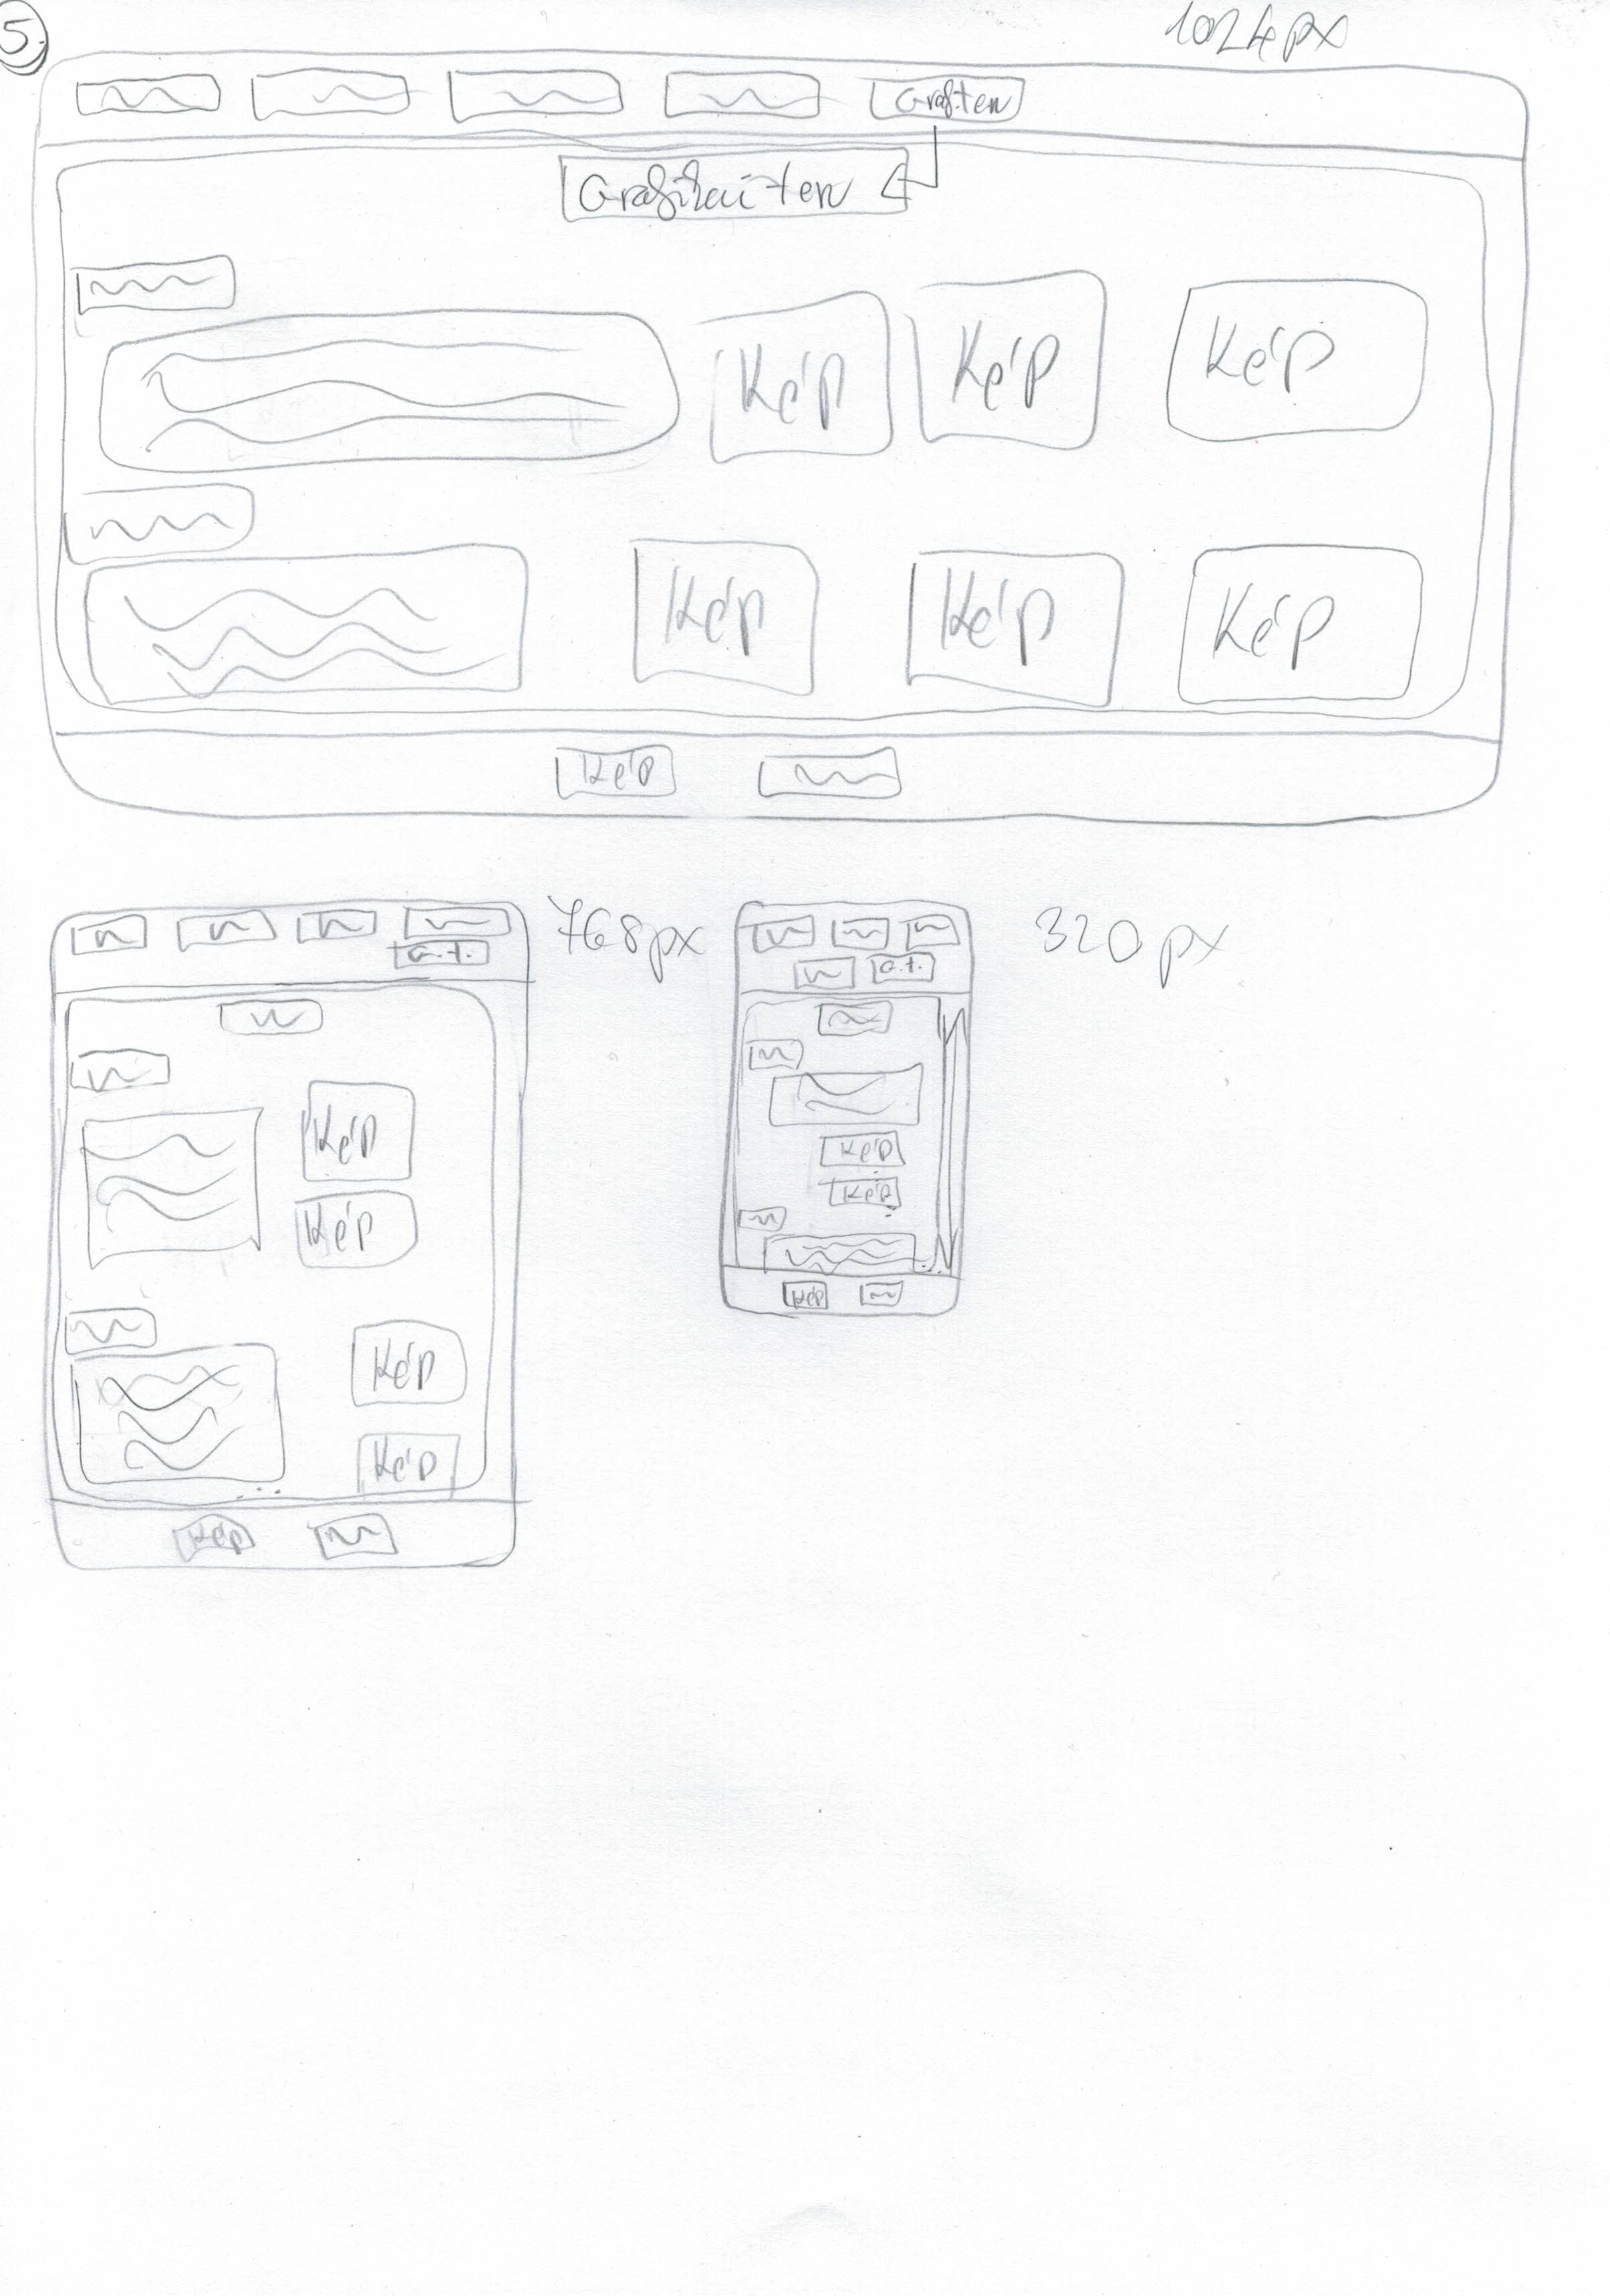 5
1024px
Graften
Grafikai terv
Kép Kép Kép
Kép Kép Kép
Kép
768px
G.t.
Kép
Kép
Kép
Kép
Kép
320px
G.t.
Kép
Kép
Kép